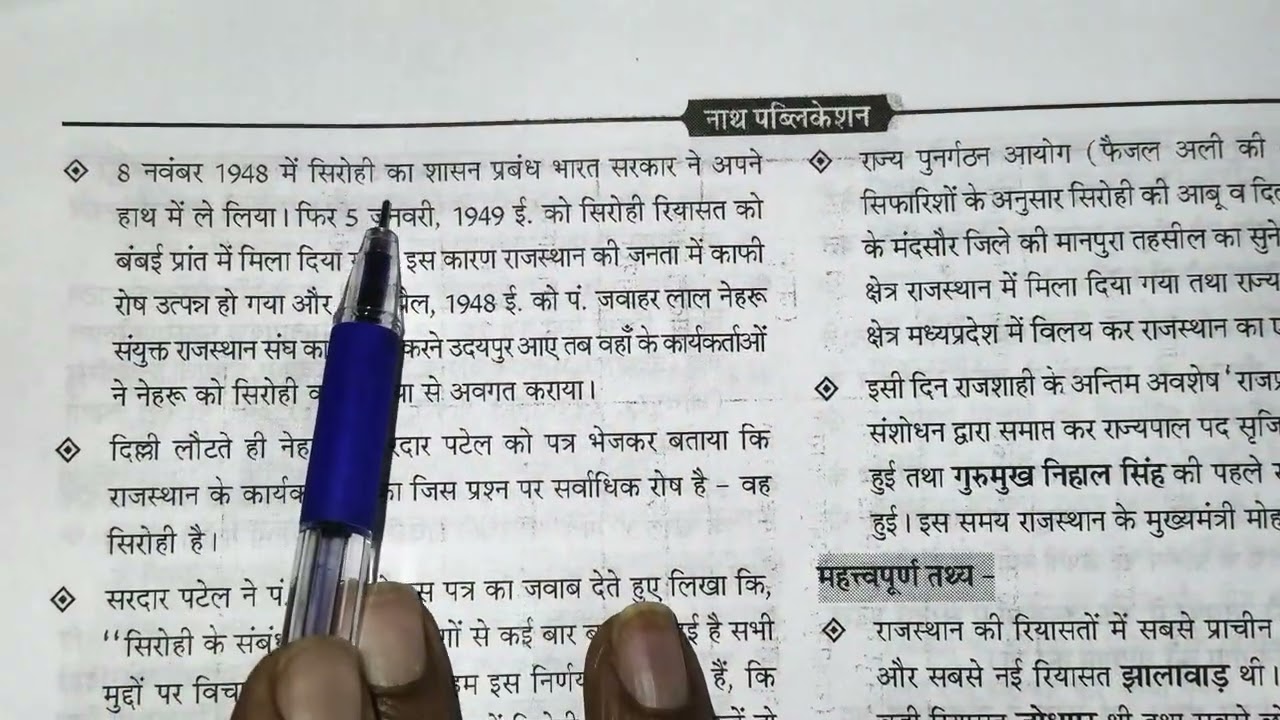 नाथ पब्लिकेशन
8 नवंबर 1948 में सिरोही का शासन प्रबंध भारत सरकार ने अपने
हाथ में ले लिया। फिर 5 जनवरी, 1949 ई. को सिरोही रियासत को
बंबई प्रांत में मिला दिया इस कारण राजस्थान की जनता में काफी
रोष उत्पन्न हो गया और 1948 ई. को पं. जवाहर लाल नेहरू
संयुक्त राजस्थान संघ का करने उदयपुर आए तब वहाँ के कार्यकर्ताओं
ने नेहरू को सिरोही से अवगत कराया।
दिल्ली लौटते ही पटेल को पत्र भेजकर बताया कि
राजस्थान के जिस प्रश्न पर सर्वाधिक रोष है – वह
सिरोही है।
सरदार पटेल ने पं. पत्र का जवाब देते हुए लिखा कि,
‘‘सिरोही के से कई बार है सभी
मुद्दों पर इस हैं, कि
राज्य पुनर्गठन आयोग (फैजल अली की
सिफारिशों के अनुसार सिरोही की आबू व
के मंदसौर जिले की मानपुरा तहसील का
क्षेत्र राजस्थान में मिला दिया गया तथा
क्षेत्र मध्यप्रदेश में विलय कर राजस्थान का
इसी दिन राजशाही के अन्तिम अवशेष
संशोधन द्वारा समाप्त कर राज्यपाल पद
हुई तथा गुरुमुख निहाल सिंह की पहले
हुई। इस समय राजस्थान के मुख्यमंत्री
महत्त्वपूर्ण तथ्य –
राजस्थान की रियासतों में सबसे प्राचीन
और सबसे नई रियासत झालावाड़ थी।